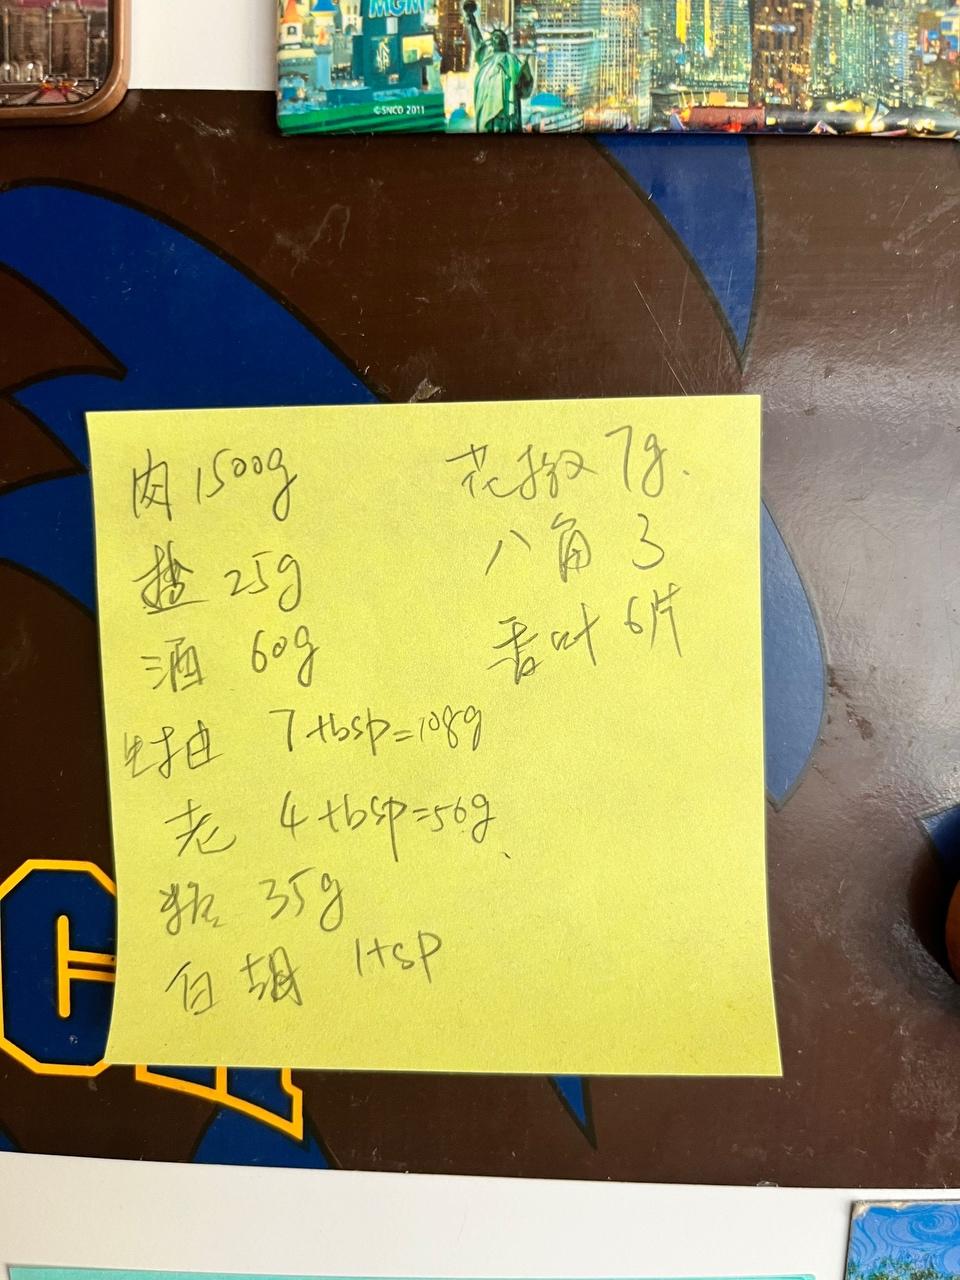 MGM
©SNCO 2011
肉 1500g
盐 25g
酒 60g
生抽 7 tbsp=108g
老 4 tbsp=56g
糖 35g
白胡 1tsp
花椒 7g.
八角 3
香叶 6片